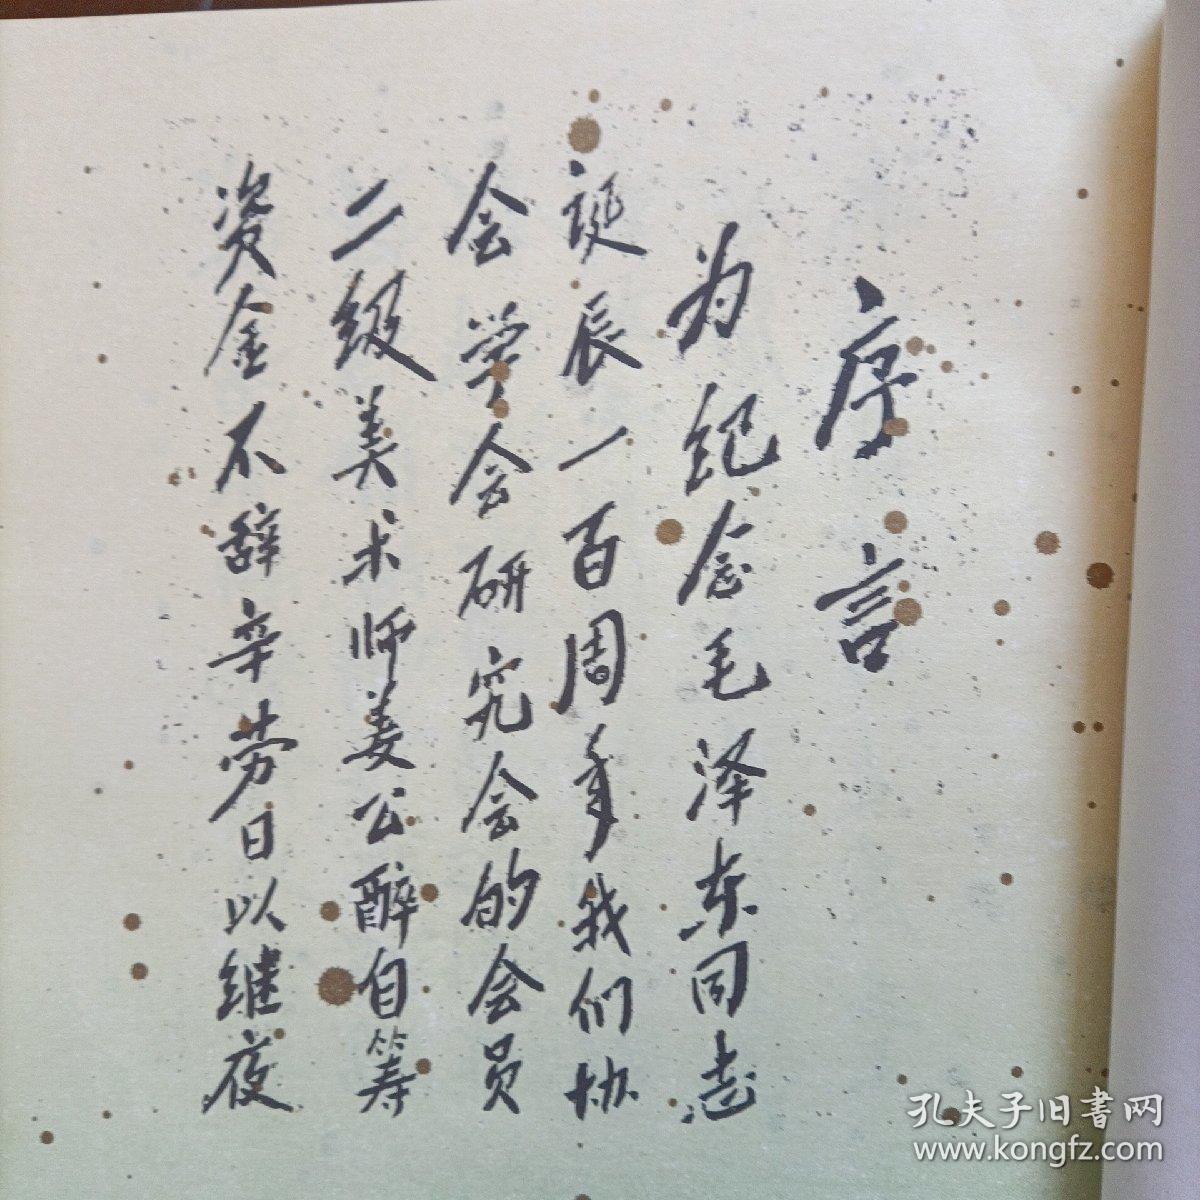 序言
为纪念毛泽东同志
诞辰一百周年我们协
会学会研究会的会员
二级美术师姜公醉自筹
资金不辞辛劳日以继夜
孔夫子旧书网
www.kongfz.com